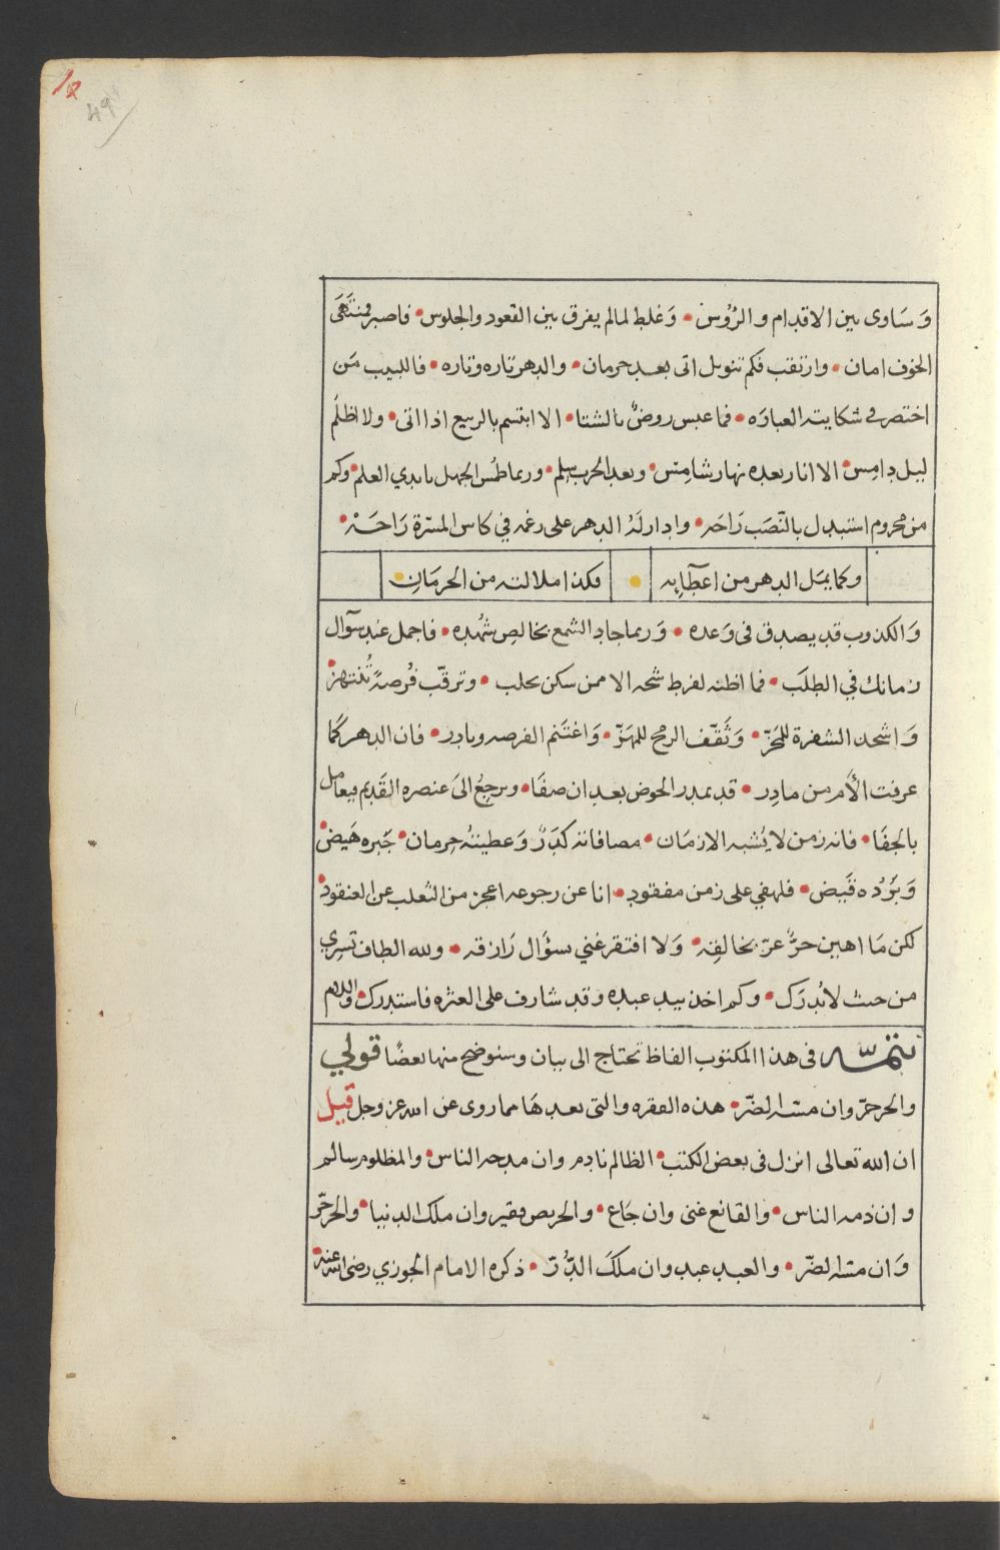 وَسَاوى بين الاقدام والرُؤس • وَغلط لما لم يفرق بين القعود والجلوس • فاصبر فمنتَهَى
الخوف امان • وارتقب فكم تنويل اتى بعد حرمان • والدهر تاره وتاره • فاللبيب مَن
اختصر في شكايته العبارَه • فما عبس روضٌ بالشتا • الا ابتسم بالربيع اذا اتى • ولا اظلَم
ليل دامِس • الا انار بعده نهار شامِس • وبعد الحرب سِلم • وربما طُمس الجهل بايدي العلم • وكم
من محروم استبدل بالنَّصَب رَاحَه • وادار لَهُ الدهر على رغمه في كاس المسَرّة رَاحَهْ •
وكما يمَل الدهر من اعطآيه • فكذا ملالته من الحرمَانِ
وَالكذوب قد يصدق فى وَعده • وَربما جاد الشمع بخالصِ شُهده • فاجمل عند سؤال
زمانك في الطلَب • فما اظنه لفرط شحه الا ممن سكن بحلب • وترقّب فُرصةً تُنتهز •
وَاشحذ الشفرة للمَحَزّ • وَثَقّف الرمح للمهَزّ • وَاغتَنم الفرصه وبادر • فان الدهر كما
عرفت الأمر من مادِر • قد يمدر الحوض بعد ان صفَا • ويرجعُ الىَ عنصره القَديم فيعامل
بالجفَا • فانه زمن لا يُشبه الازمَان • مصافاته كَدَرٌ وَعطيتهُ حِرمان • جَبره هَيض •
وَبَرْدُه قَيض • فلهفي على زمن مفقود • انا عن رجوعه اعجز من الثعلب عن العنقود •
لكن مَا اهين حرٌّ عزّ بخالِقِه • وَلا افتقر غني بسؤَال رَازقه • ولله الطاف تَسرِي
من حيث لا تُدرَك • وكم اخذ بيد عبده وقد شارف على العثره فاستدرك • والسلام
تتمّــه فى هذا المكتوب الفاظ تحتاج الى بيان وسنوضح منها بعضًا قولي
والحر حرّ وان مسّه الضّر • هذه الفقره والتى بعدهَا مما روى عن الله عز وجل قيل
ان الله تعالى انزل فى بعض الكتب • الظالم نادم وان مدحه الناس • والمظلوم سالم
وان ذمه الناس • والقانع غنى وان جَاع • والحريص فقير وان ملك الدنيا • والحر حرّ
وَان مسّه الضّر • والعبد عبد وان ملَكَ الدُّرّ • ذكره الامام الجوزي رضى الله عنه •